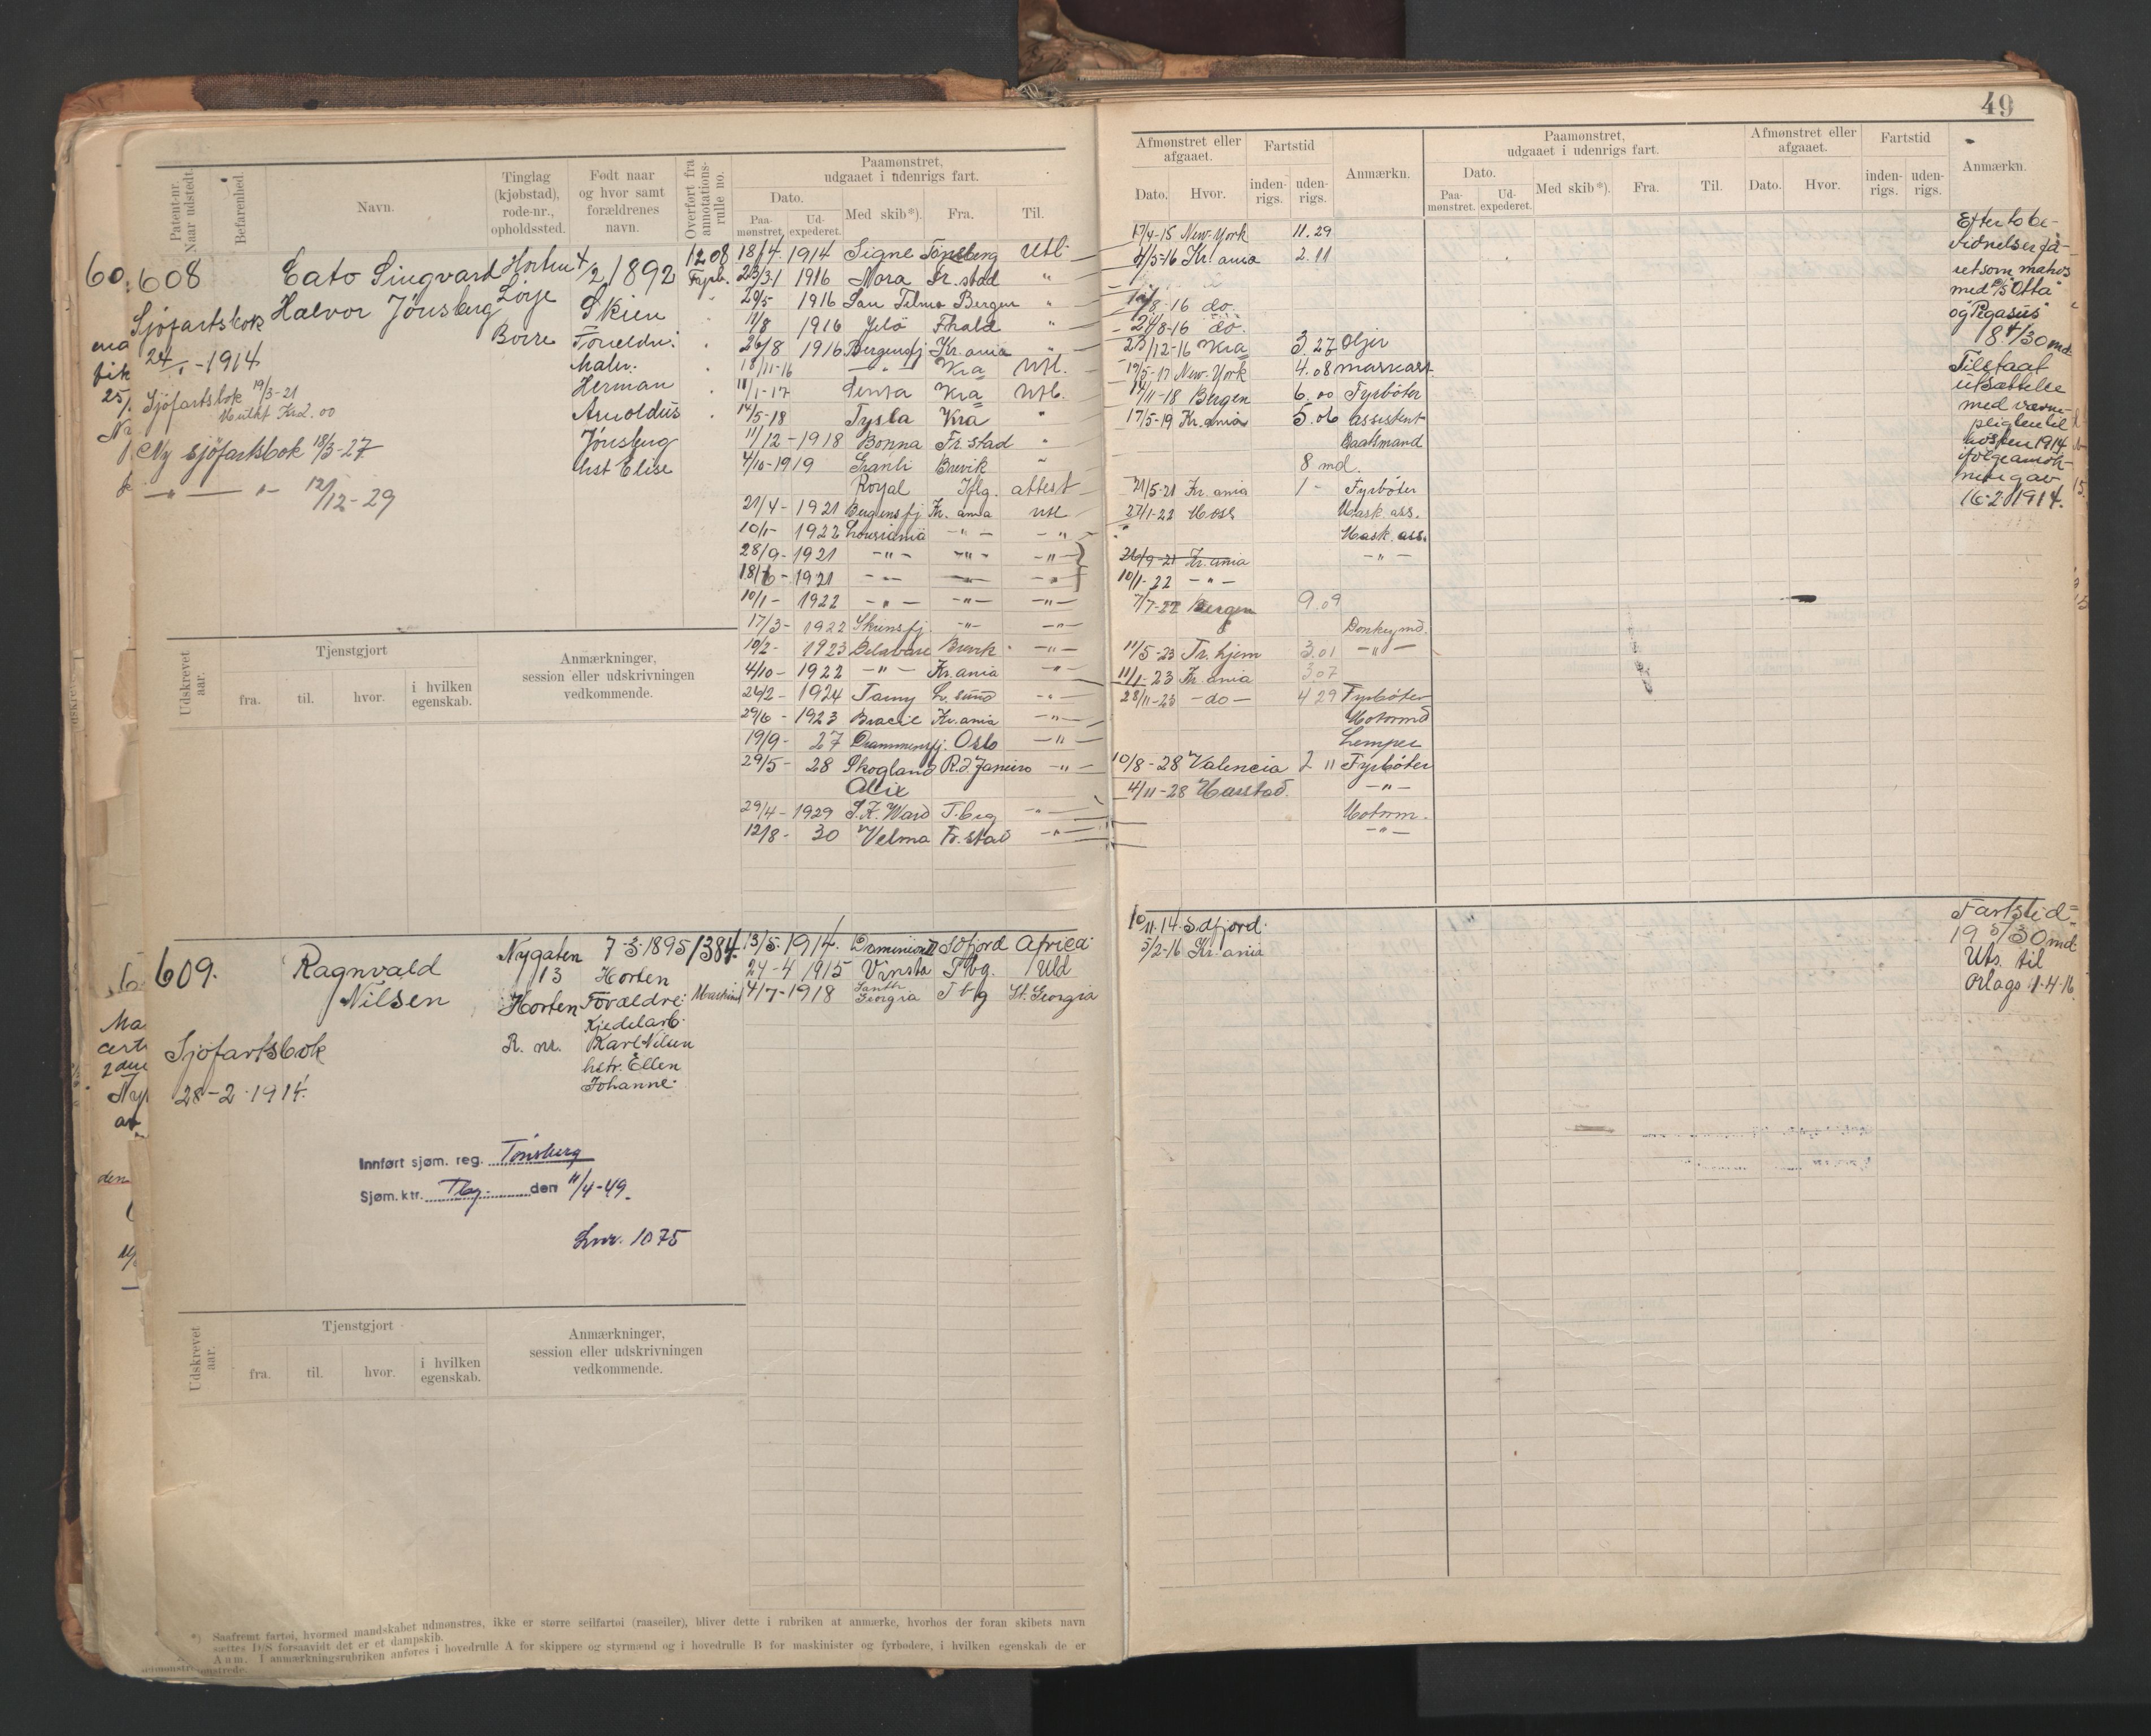 49
Patent-nr. Naar udstedt.
Befarenhed.
Navn.
Tinglag (kjøbstad), rode-nr., opholdssted.
Født naar og hvor samt forældrenes navn.
Overført fra annotations-rulle no.
Paamønstret, udgaaet i udenrigs fart.
Dato.
Paa-mønstret. Ud-expederet.
Med skib*). Fra. Til.
608
Sjöfartsbok
1914
Sjöfartsbok 19/3-21
Ny sjöfartsbok 18/3-27
—"— "— 12/12-29
Halvor Jönsberg
Horten
Borre
4/2 1892
Skien
Foreldre:
Maler:
Herman
Arnoldus
Jönsberg
hst Elise
1208
Fyrb.
18/4 1914 Signe Tönsberg Utl.
23/3 1 1916 Nora Fr.stad "
20/5 1916 San Telmo Bergen "
11/8 1916 Jelö Fhald "
26/8 1916 Bergensfj Kr.ania "
18/11-16 —"— Kra Utl.
11/1-17 Kra Utl.
14/5-18 Tysla Kra "
11/12-1918 Bonna Fr.stad "
4/10-1919 Granli Brevik "
Royal Iflg. attest
21/4-1921 Bergensfj Kr.ania utl
10/1-1922 Louisiania —"— —"
28/9-1921 —"— —"— —"—
18/6-1921 —"— —"— —"—
10/1-1922 —"— —"— —"—
17/3-1922 Skiensfj. —"— —"—
10/2-1923 Delaware Brevik —"—
4/10-1922 —"— Kr.ania —"—
26/2-1924 Tamy L.sund —"—
29/6-1923 Bracil Kr.ania —"—
19/9-27 Drammensfj. Oslo —"—
29/5-28 Skogland R.d.Janeiro —"—
Alix
29/4-1929 S.K.Ward T.berg —"—
12/8-30 Velma Fr.stad —"—
Udskrevet aar.
Tjenstgjort
fra. til. hvor. i hvilken egenskab.
Anmærkninger, session eller udskrivningen vedkommende.
609.
Ragnvald
Nilsen
Sjöfartsbok
28-2-1914.
Nygaten
13
Horten
R. nr.
7-3-1895
Horten
Forældre:
Kjedelarb.
Karl Nilsen
hstr. Ellen
Johanne.
1384.
13/5-1914. Dominion S.dfjord Africa
24-4 1915 Vinsta Tbg. Utld
4/7-1918 South Georgia Tbg St. Georgia
Innført sjøm. reg. Tönsberg
Sjøm.ktr. Tbg. den 11/4-49.
Lnr. 1075
Udskrevet aar.
Tjenstgjort
fra. til. hvor. i hvilken egenskab.
Anmærkninger, session eller udskrivningen vedkommende.
*) Saafremt fartøi, hvormed mandskabet udmønstres, ikke er større seilfartøi (raaseiler), bliver dette i rubriken at anmærke, hvorhos der foran skibets navn
sættes D/S forsaavidt det er et dampskib.
Anm. I anmærkningsrubriken anføres i hovedrulle A for skippere og styrmænd og i hovedrulle B for maskinister og fyrbødere, i hvilken egenskab de er
Afmønstret eller afgaaet.
Dato. Hvor.
Fartstid
inden-rigs. uden-rigs.
Anmærkn.
Paamønstret, udgaaet i udenrigs fart.
Dato.
Paa-mønstret. Ud-expederet.
Med skib*). Fra. Til.
Afmønstret eller afgaaet.
Dato. Hvor.
Fartstid
inden-rigs. uden-rigs.
Anmærkn.
17/4-15 New-York 11.29
4/5-16 Kr.ania 2.11
8-16 do.
24/8-16 do.
23/12-16 Kra 3 27 Oljer
19/5-17 New-York 4.08 maskass.
14/11-18 Bergen 6.00 Fyrböter
17/5-19 Kr.ania 5.06 assistent
Baatsmand
8 md.
21/5-21 Kr.ania 1- Fyrböter
27/1-22 Moss Mask.ass.
Mask.ass.
26/9-21 Kr.ania —"—
10/1-22 —"—
7/7-22 Bergen 9.09
Donkeymd.
11/5-23 Fr.hjem 3.01 —"—
11/1-23 Kr.ania 3.07
28/11-23 —do— 4 29 Fyrböter
Motormd
Lemper
10/8-28 Valencia 2 " Fyrböter
4/11-28 Harstad. —"—
Motorm.
—"—
Efter to be-
vidnelser fa-
ret som matros
med D/S "Otta"
og "Pegasus"
18.4/30 md.
Tilstaat
utsættelse
med verne-
pligten til
høsten 1914
ifölge ansök-
16-2-1914.
10/11.14. S.dfjord.
5/2-16 Kr.ania
Fartstid=
19 5/30 md.
Uts. til
orlogs 1.4.16.